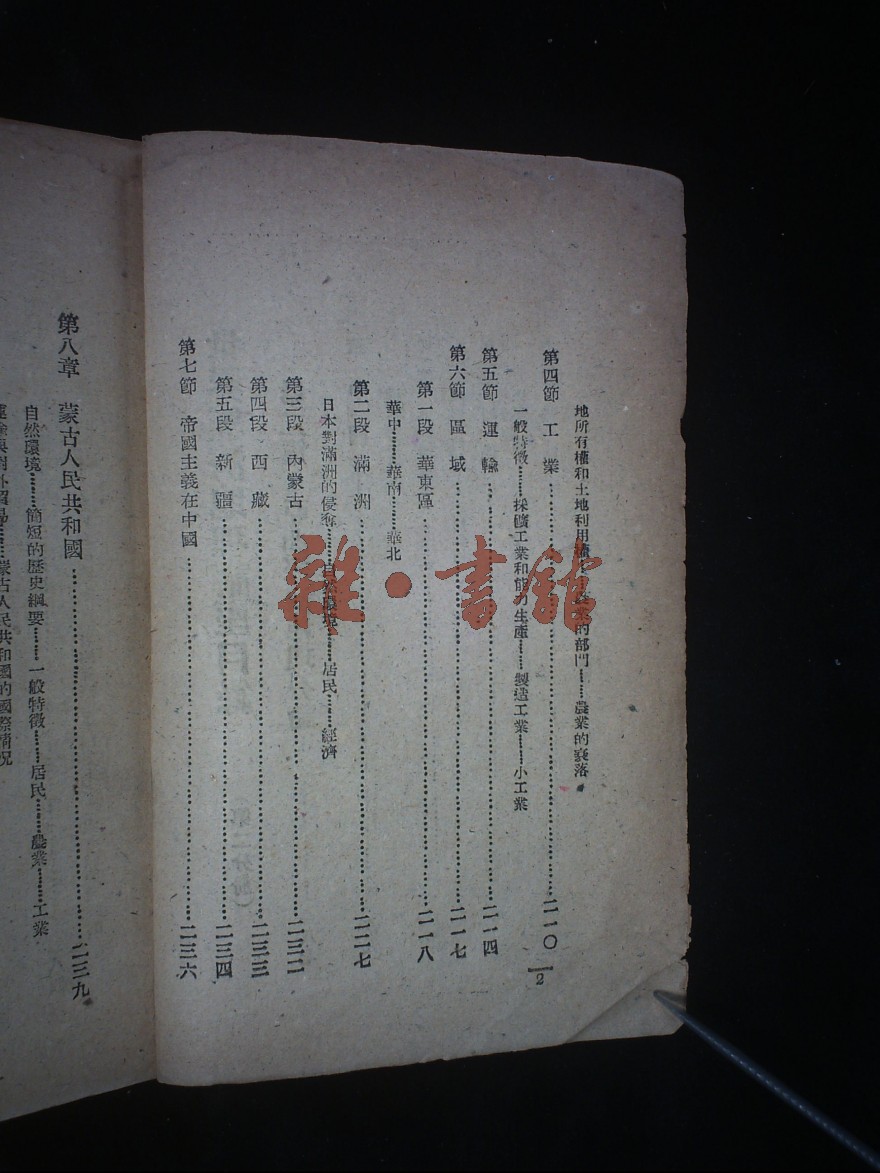 地所有權和土地利用的部門……農業的衰落
第四節 工業……二一〇
一般特徵……採礦工業和能力生產……製造工業……小工業
第五節 運輸……二一四
第六節 區域……二一七
第一段 華東區……二一八
華中……華南……華北
第二段 滿洲……二二七
日本對滿洲的侵奪……自然環境……居民……經濟
第三段 內蒙古……二三二
第四段 西藏……二三三
第五段 新疆……二三四
第七節 帝國主義在中國……二三六
2
第八章 蒙古人民共和國……二三九
自然環境……簡短的歷史綱要……一般特徵……居民……農業……工業
運輸與對外貿易……蒙古人民共和國的國際情況
雜·書館